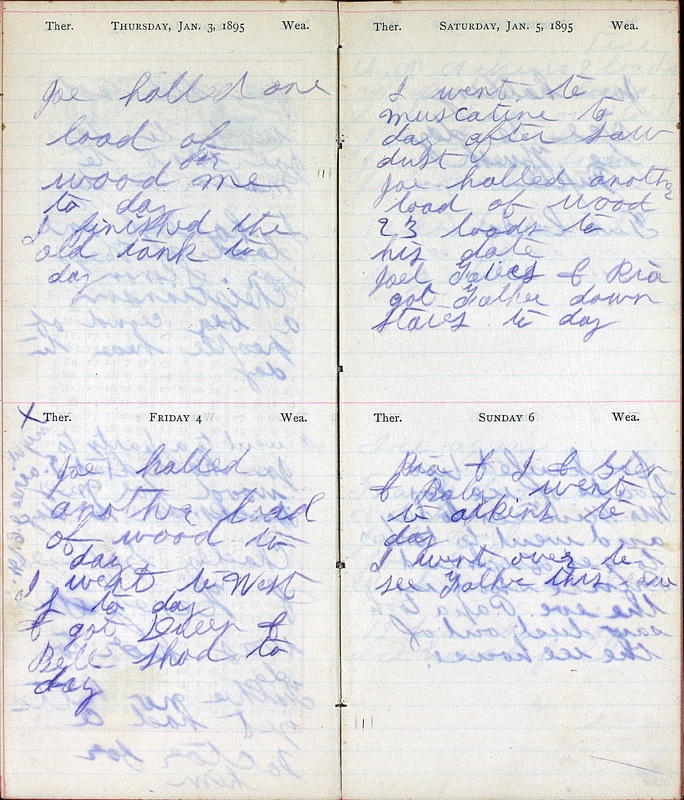 Ther. Thursday, Jan. 3, 1895 Wea.
Joe halled one
load of
for
wood me
to day
I finished the
old tank to
day
X Ther. Friday 4 Wea.
Joe halled
another load
of wood to
day
I went to West
L to day
& got Queen &
Bell shod to
day
Ther. Saturday, Jan. 5, 1895 Wea.
I went to
muscatine to
day after saw
dust
Joe halled anothe
load of wood
23 loads to
his date
Joel & Ria
got Father down
stares to day
Ther. Sunday 6 Wea.
Ria & I & Glen
& Baby went
to atkins to
day
I went over to
see Father this eve